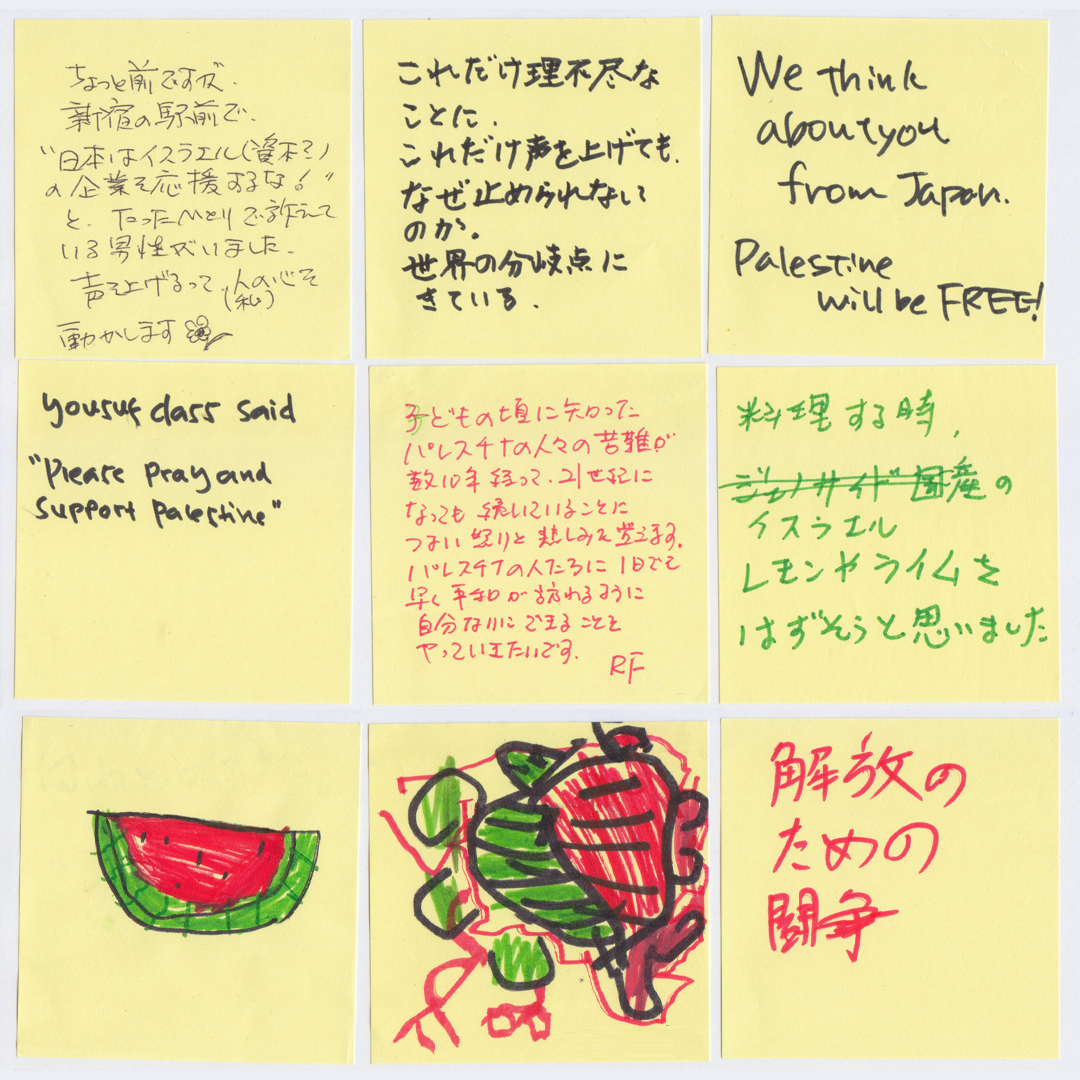 ちょっと前ですが、
新宿の駅前で、
"日本はイスラエル(資本?)
の企業を応援するな!"
と、たったひとりで訴えて
いる男性がいました。
声を上げるって、人の心を
(私)
動かします
これだけ理不尽な
ことに、
これだけ声を上げても、
なぜ止められない
のか。
世界の分岐点に
きている。
We think
about you
from Japan.
Palestine
will be FREE!
yousuf class said
"Please Pray and
support Palestine"
子どもの頃に知った
パレスチナの人々の苦難が
数10年経って、21世紀に
なっても続いていることに
つよい怒りと悲しみを覚えます。
パレスチナの人たちに1日でも
早く平和が訪れるように
自分なりにできることを
やっていきたいです。
RF
料理する時、
ジェノサイド国産の
イスラエル
レモンやライムを
はずそうと思いました
解放の
ための
闘争